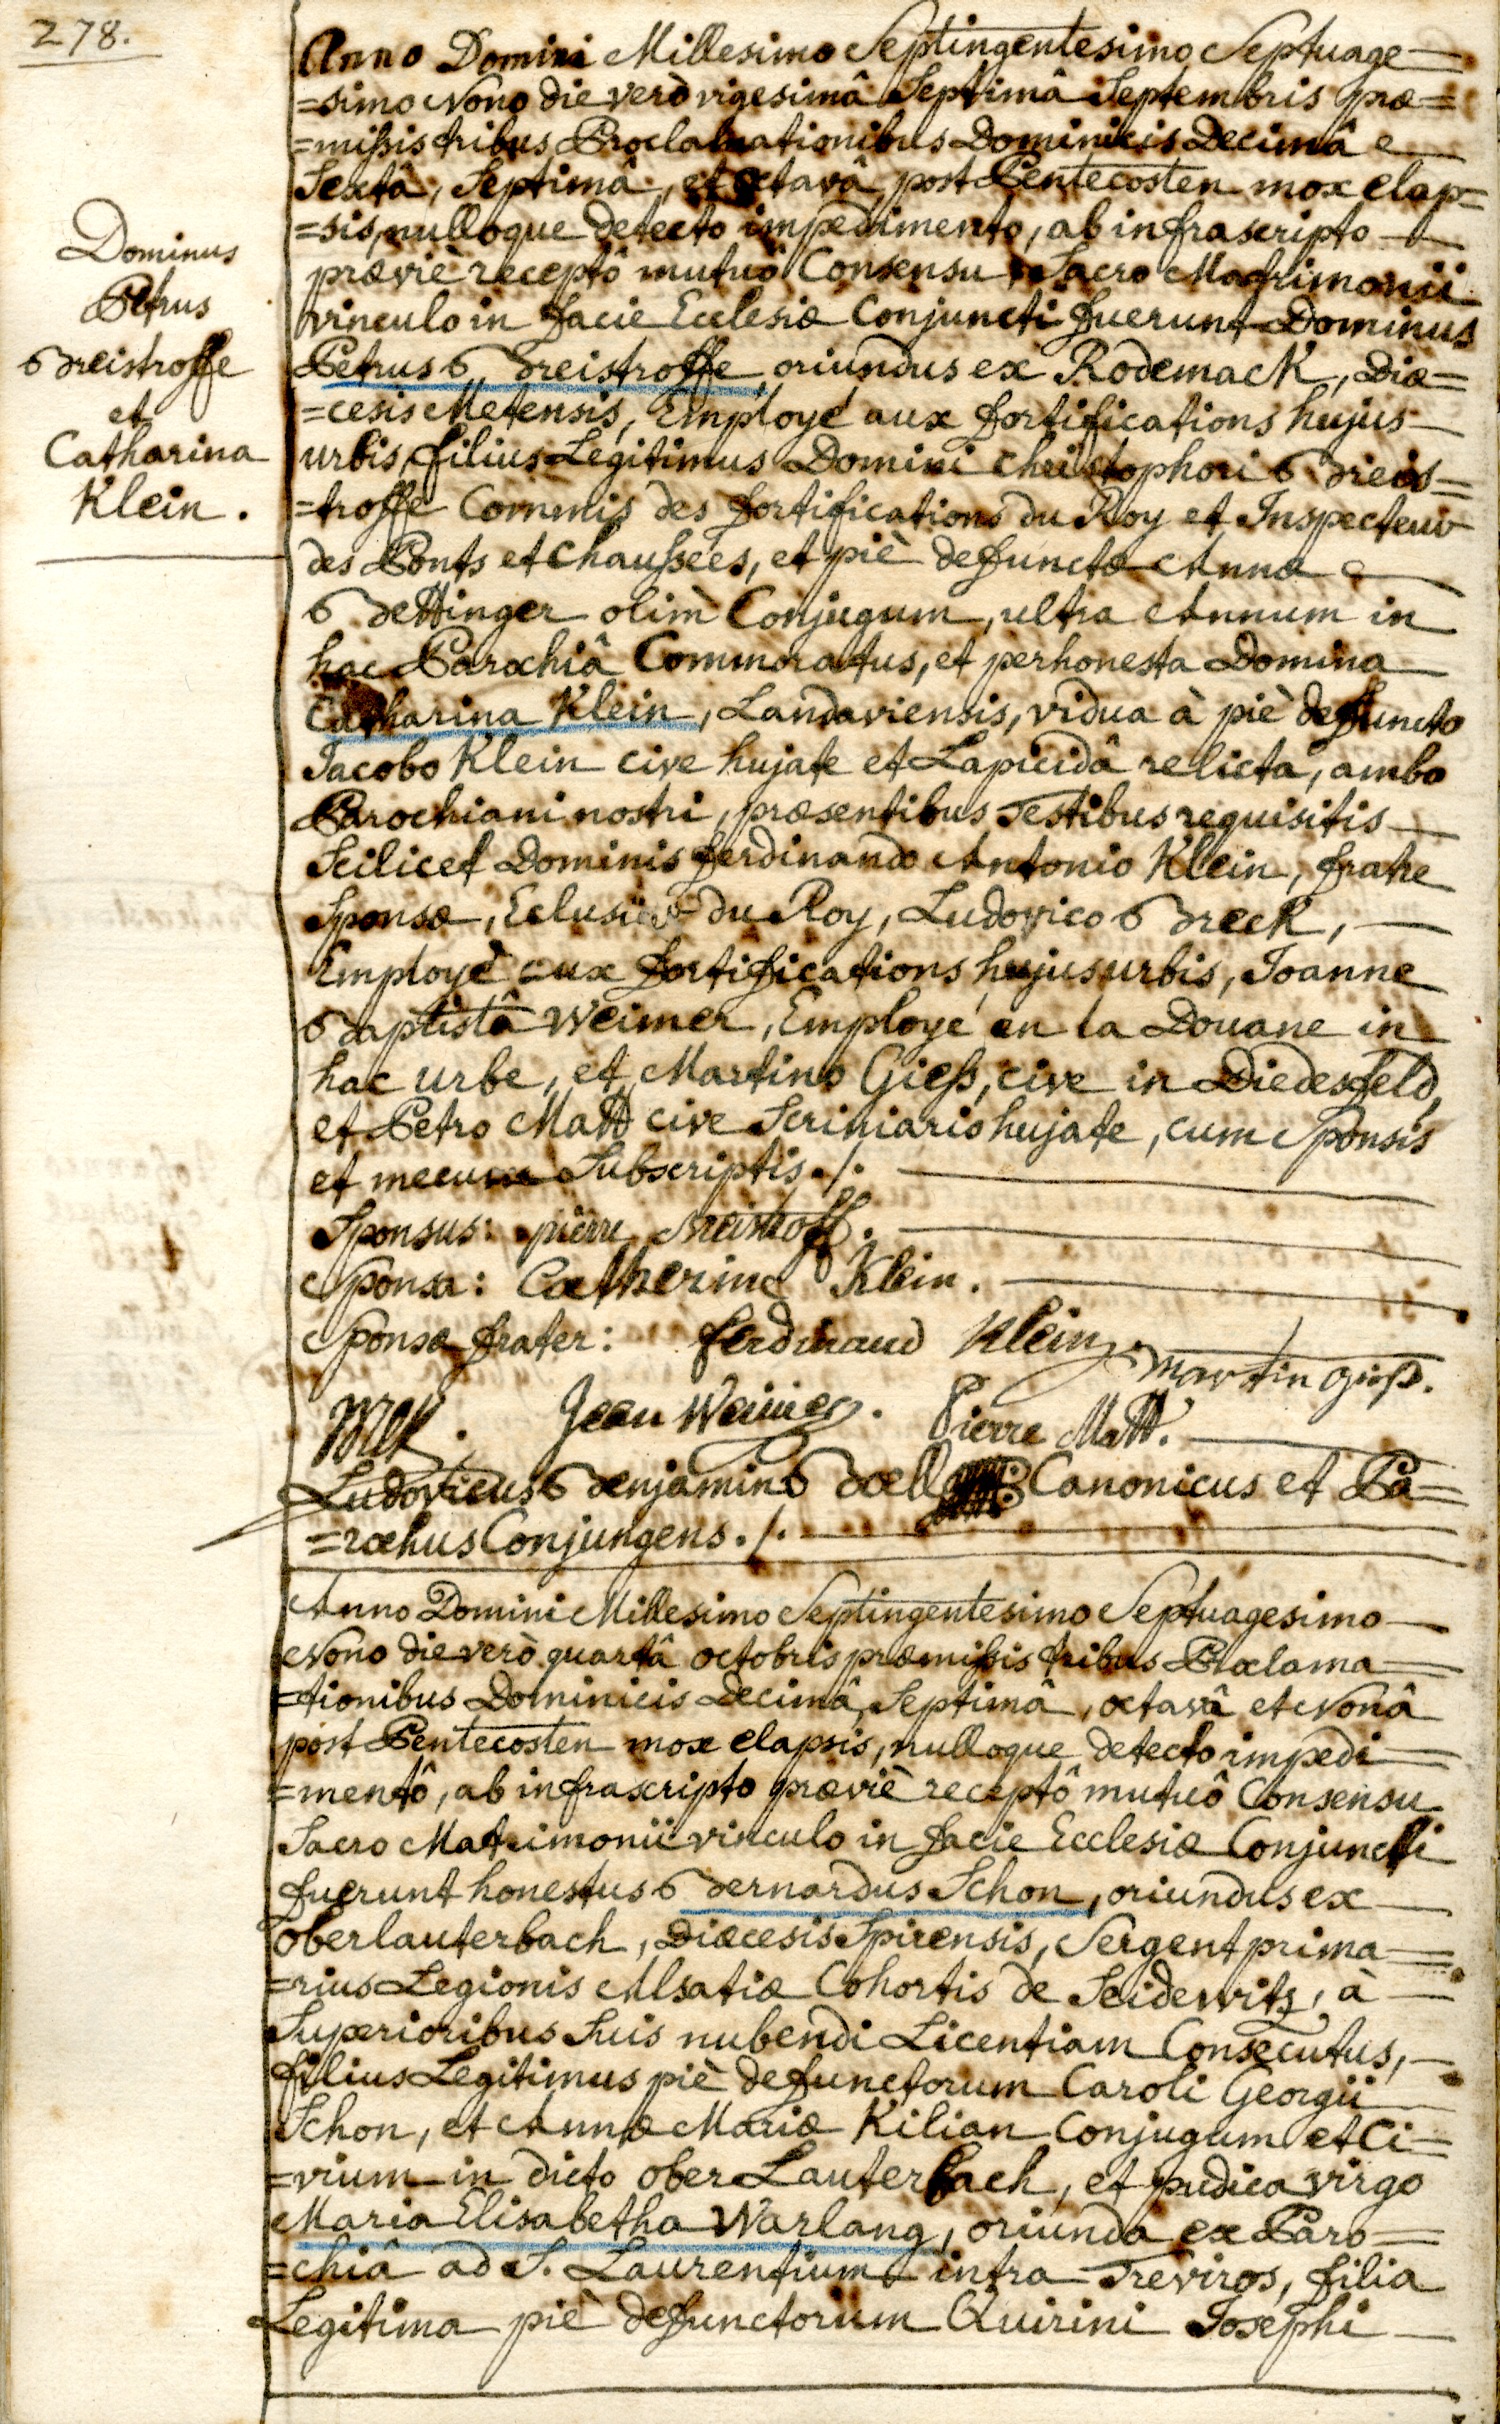 278.
Dominus
Petrus
Breistroffe
et
Catharina
Klein.
Anno Domini Millesimo Septingentesimo Septuage-
=simo Nono die verò vigesimâ Septimâ Septembris præ=
=missis tribus Proclamationibus Dominicis Decimâ
Sextâ, Septimâ, et octavâ post Pentecosten mox elap=
=sis, nulloque detecto impedimento, ab infrascripto
præviè receptô mutuô Consensu Sacro Matrimonii
vinculo in facie Ecclesiæ Conjuncti fuerunt Dominus
Petrus Breistroffe, oriundus ex Rodemack, Diæ=
=cesis Metensis, Employé aux fortifications hujus
urbis, filius Legitimus Domini Christophori Breis=
=troffe Commis des fortifications du Roy et Inspecteur
des Ponts et chaussées, et piè defunctæ Annæ
Bettinger olim Conjugum, ultra Annum in
hac Parochiâ Commoratus, et perhonesta Domina
Catharina Klein, Landaviensis, vidua à piè defuncto
Jacobo Klein cive hujate et Lapicidâ relicta, ambo
Parochiani nostri, præsentibus Testibus requisitis
Scilicet Dominis ferdinando Antonio Klein, fratre
Sponsæ, Eclusier du Roy, Ludovico Breck,
Employé aux fortifications hujus urbis, Joanne
Baptistâ Weimer, Employé en la Douane in
hac urbe, et Martino Giess, cive in Diedesfeld,
et Petro Matt cive Scriniario hujate, cum Sponsis
et mecum Subscriptis ./.
Sponsus: pierre Breistroff.
Sponsa: Catherine Klein.
Sponsæ frater: ferdinand Klein.
Martin gieß.
Breck. Jean Weimer. Pierre Matt.
Ludovicus Benjamin Boell Canonicus et Pa=
=rochus Conjungens ./.
Anno Domini Millesimo Septingentesimo Septuagesimo
Nono die verò quartâ octobris præmissis tribus Proclama=
=tionibus Dominicis Decimâ Septimâ, octavâ et Nonâ
post Pentecosten mox elapsis, nulloque detecto impedi=
=mentô, ab infrascripto præviè receptô mutuô Consensu
Sacro Matrimonii vinculo in facie Ecclesiæ Conjuncti
fuerunt honestus Bernardus Schon, oriundus ex
oberlauterbach, Diæcesis Spirensis, Sergent prima=
=rius Legionis Alsatiæ Cohortis de Seidewitz, à
Superioribus Suis nubendi Licentiam Consecutus,
filius Legitimus piè defunctorum Caroli Georgii
Schon, et Annæ Mariæ Kilian Conjugum et Ci=
=vium in dicto ober Lauterbach, et pudica virgo
Maria Elisabetha Warlang, oriunda ex Paro=
=chiâ ad S. Laurentium intra Treviros, filia
Legitima piè defunctorum Quirini Josephi